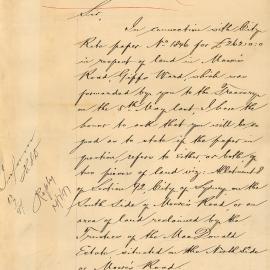 Sir,
In connection with City
Rate paper No 1846 for £262.10.0
in respect of land in Macris
Road, Gipps Ward, which was
forwarded by you to the Treasury
on the 5th May last, I have the
honor to ask that you will be so
good as to state if the paper in
question, refers to either or both of
two pieces of land viz: Allotment 8
of Section 92 City of Sydney on the
South Side of Road or an
area of land reclaimed by the
Trustees of the MacDonald
Estate situated on the North Side
of Road
Reply